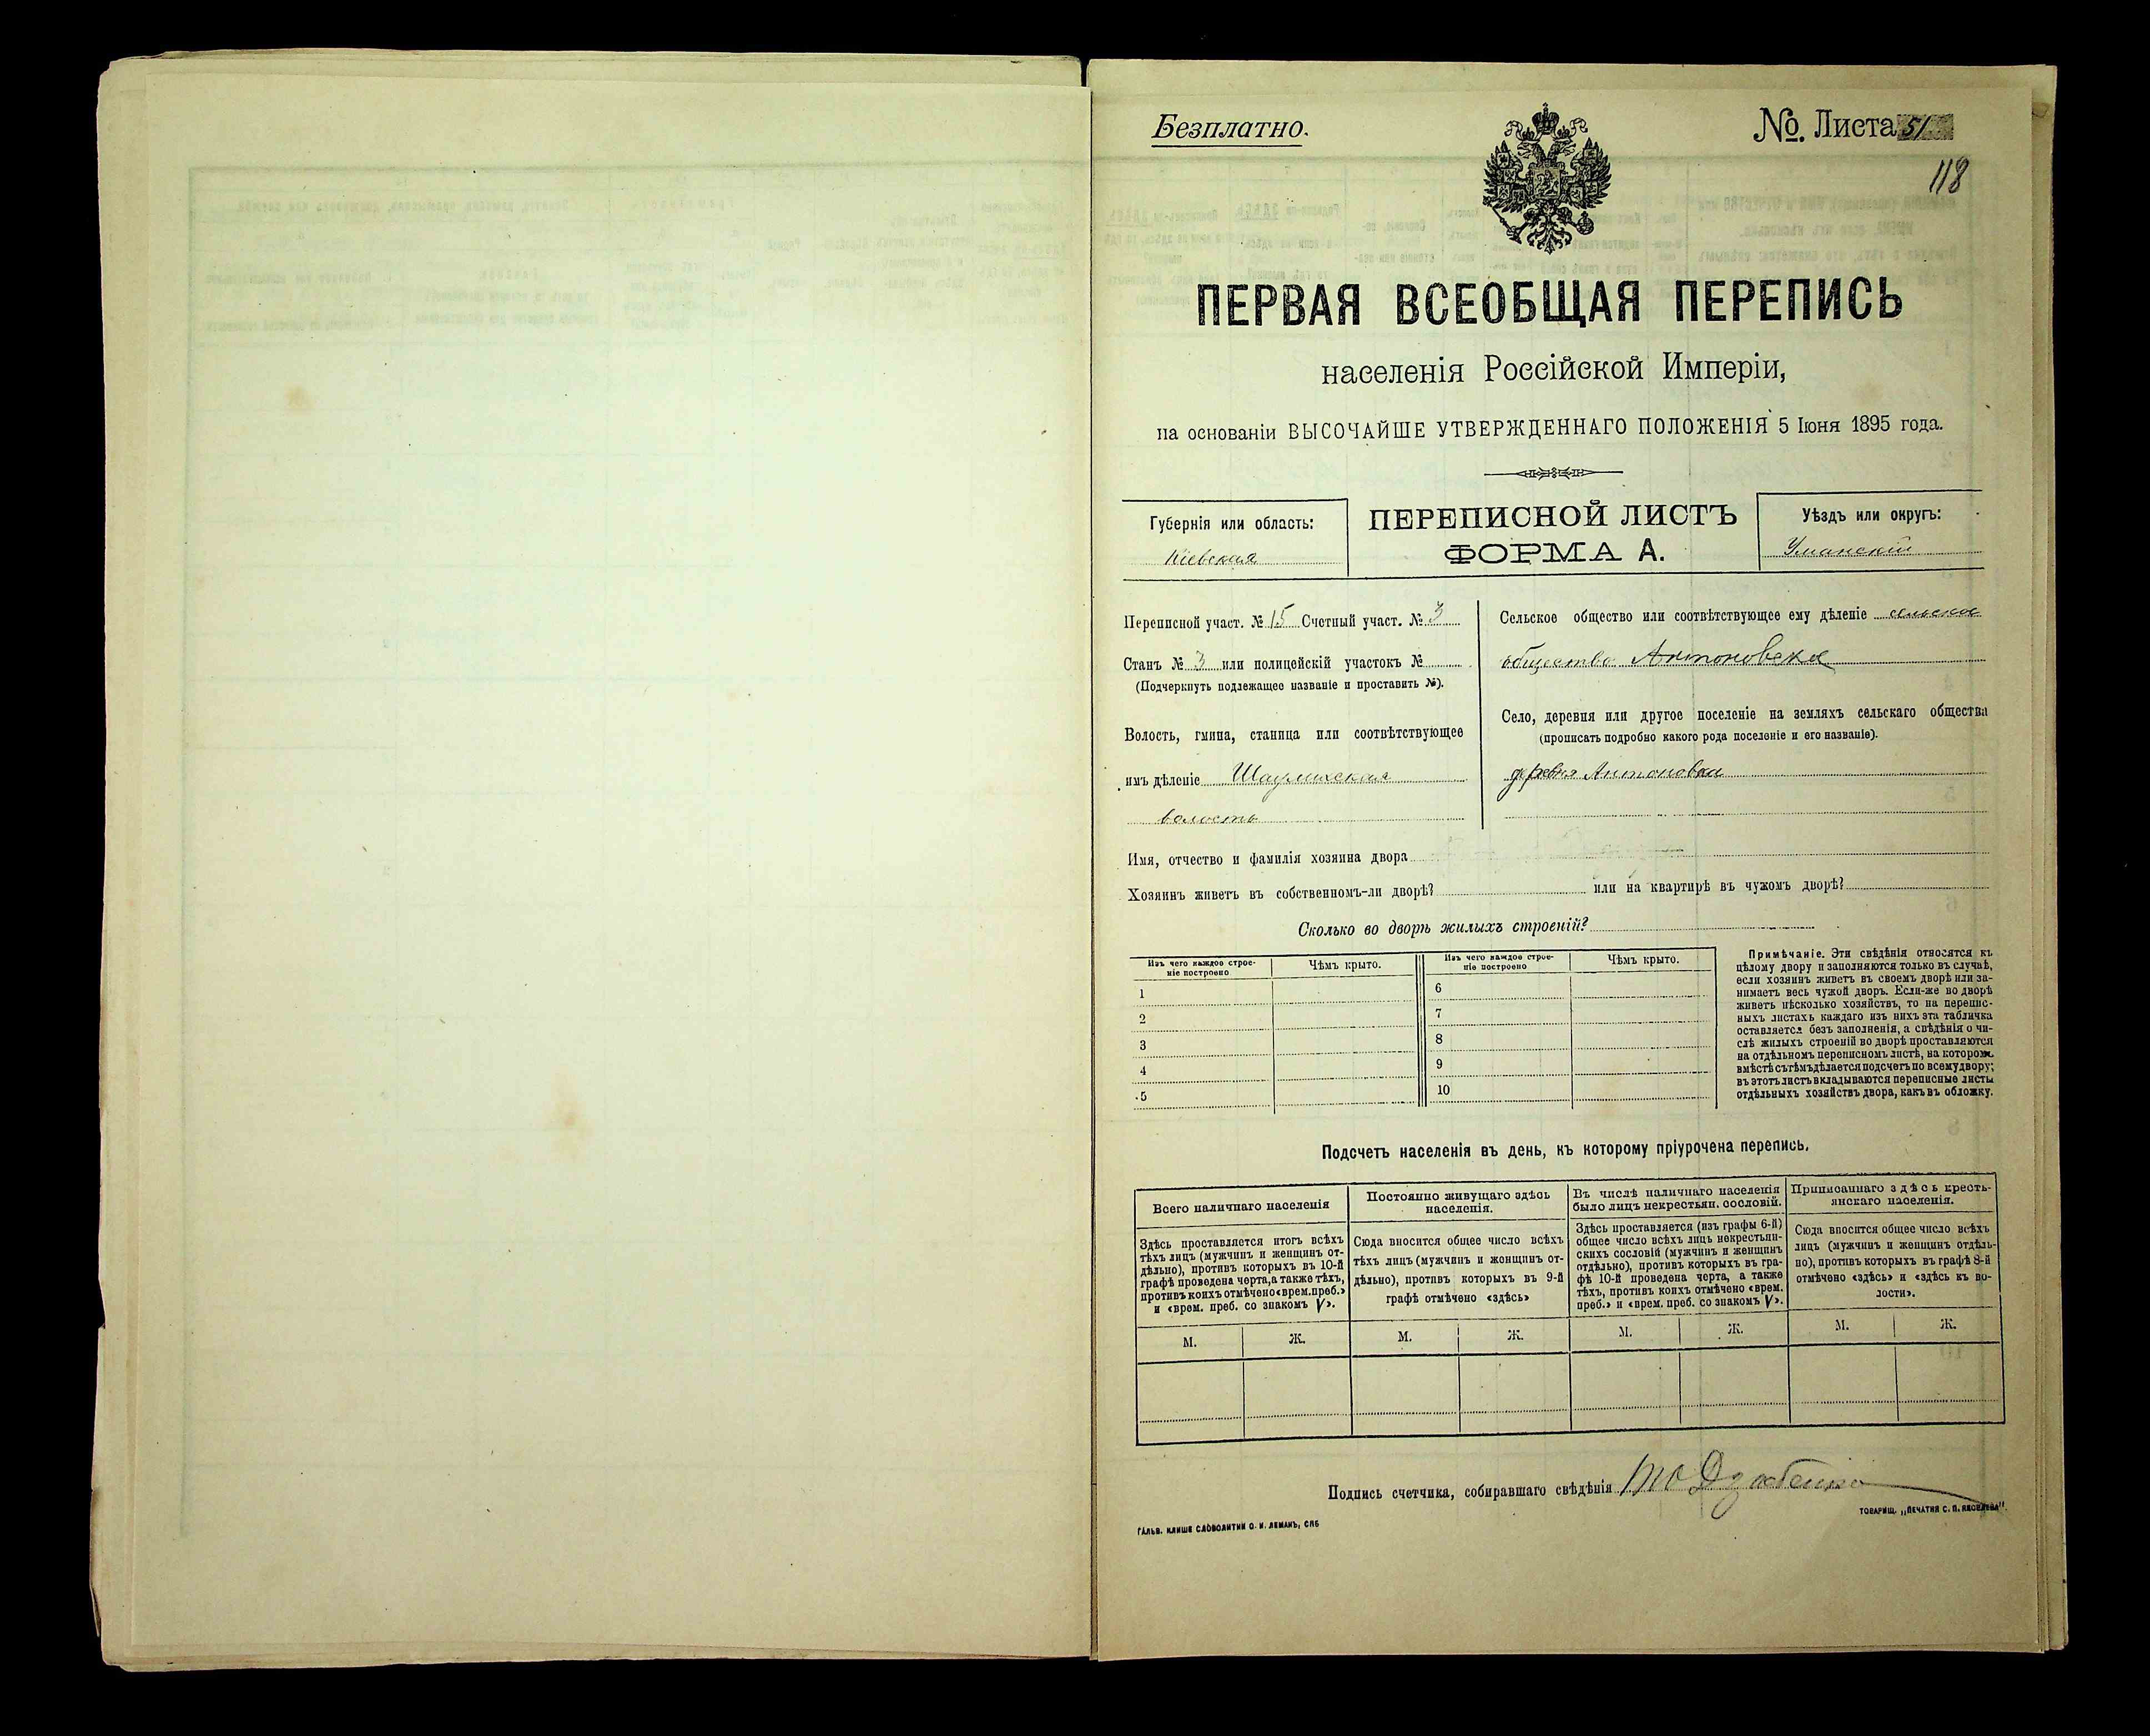 Безплатно.
№. Листа 51
118
ПЕРВАЯ ВСЕОБЩАЯ ПЕРЕПИСЬ
населенія Россійской Имперіи,
на основаніи ВЫСОЧАЙШЕ УТВЕРЖДЕННАГО ПОЛОЖЕНІЯ 5 Іюня 1895 года.
Губернія или область:
Кіевская
ПЕРЕПИСНОЙ ЛИСТЪ
ФОРМА А.
Уѣздъ или округъ:
Уманскій
Переписной участ. № 15 Счетный участ. № 3
Станъ № 3 или полицейскій участокъ №
(Подчеркнуть подлежащее названіе и проставить №).
Волость, гмина, станица или соотвѣтствующее
имъ дѣленіе Шаулихская
волость
Сельское общество или соотвѣтствующее ему дѣленіе сельское
общество Антоновское
Село, деревня или другое поселеніе на земляхъ сельскаго общества
(прописать подробно какого рода поселеніе и его названіе).
деревня Антоновка
Имя, отчество и фамилія хозяина двора
Хозяинъ живетъ въ собственномъ-ли дворѣ? или на квартирѣ въ чужомъ дворѣ?
Сколько во дворѣ жилыхъ строеній?
Изъ чего каждое строе-
ніе построено
Чѣмъ крыто.
Изъ чего каждое строе-
ніе построено
Чѣмъ крыто.
1
2
3
4
5
6
7
8
9
10
Примѣчаніе. Эти свѣдѣнія относятся къ
цѣлому двору и заполняются только въ случаѣ,
если хозяинъ живетъ въ своемъ дворѣ или за-
нимаетъ весь чужой дворъ. Если-же во дворѣ
живетъ нѣсколько хозяйствъ, то на перепис-
ныхъ листахъ каждаго изъ нихъ эта табличка
оставляется безъ заполненія, а свѣдѣнія о чи-
слѣ жилыхъ строеній во дворѣ проставляются
на отдѣльномъ переписномъ листѣ, на которомъ
вмѣстѣ съ тѣмъ дѣлается подсчетъ по всему двору;
въ этотъ листъ вкладываются переписные листы
отдѣльныхъ хозяйствъ двора, какъ въ обложку.
Подсчетъ населенія въ день, къ которому пріурочена перепись.
Всего наличнаго населенія
Здѣсь проставляется итогъ всѣхъ
тѣхъ лицъ (мужчинъ и женщинъ от-
дѣльно), противъ которыхъ въ 10-й
графѣ проведена черта, а также тѣхъ,
противъ коихъ отмѣчено «врем. преб.»
и «врем. преб. со знакомъ V».
Постоянно живущаго здѣсь
населенія.
Сюда вносится общее число всѣхъ
тѣхъ лицъ (мужчинъ и женщинъ от-
дѣльно), противъ которыхъ въ 9-й
графѣ отмѣчено «здѣсь»
Въ числѣ наличнаго населенія
было лицъ некрестьян. сословій.
Здѣсь проставляется (изъ графы 6-й)
общее число всѣхъ лицъ некрестьян-
скихъ сословій (мужчинъ и женщинъ
отдѣльно), противъ которыхъ въ гра-
фѣ 10-й проведена черта, а также
тѣхъ, противъ коихъ отмѣчено «врем.
преб.» и «врем. преб. со знакомъ V».
Приписаннаго здѣсь кресть-
янскаго населенія.
Сюда вносится общее число всѣхъ
лицъ (мужчинъ и женщинъ отдѣль-
но), противъ которыхъ въ графѣ 8-й
отмѣчено «здѣсь» и «здѣсь къ во-
лости».
М. Ж. М. Ж. М. Ж. М. Ж.
Подпись счетчика, собиравшаго свѣдѣнія
ГАЛЬВ. КЛИШЕ СЛОВОЛИТНИ О. И. ЛЕМАНЪ, СПБ
ТОВАРИЩ. „ПЕЧАТНЯ С. П. ЯКОВЛЕВА".